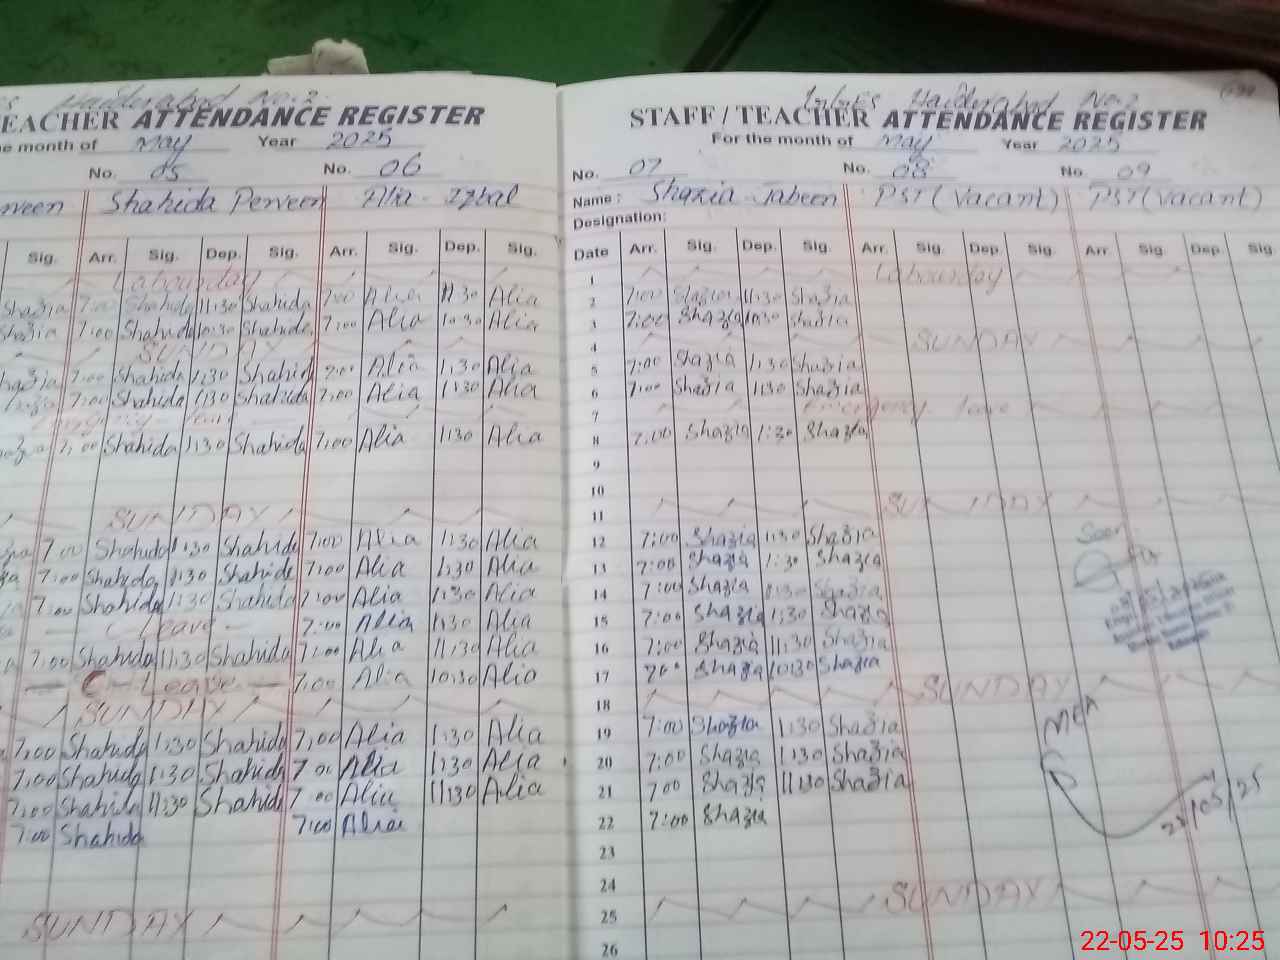 Haiderabad No. 2
EACHER ATTENDANCE REGISTER
e month of May Year 2025
No. 05 No. 06
rveen Shahida Perveen Alia Iqbal
Sig. Arr. Sig. Dep. Sig. Arr. Sig. Dep. Sig.
Labourday
Shazia 7:00 Shahida 11:30 Shahida 7:00 Alia 11:30 Alia
Shazia 7:00 Shahida 10:30 Shahida 7:00 Alia 10:30 Alia
SUNDAY
7:00 Shahida 1:30 Shahida 7:00 Alia 1:30 Alia
7:00 Shahida 1:30 Shahida 7:00 Alia 1:30 Alia
7:00 Shahida 1:30 Shahida 7:00 Alia 1:30 Alia
SUNDAY
7:00 Shahida 1:30 Shahida 7:00 Alia 1:30 Alia
7:00 Shahida 1:30 Shahida 7:00 Alia 1:30 Alia
7:00 Shahida 1:30 Shahida 7:00 Alia 1:30 Alia
Leave 7:00 Alia 1:30 Alia
7:00 Shahida 11:30 Shahida 7:00 Alia 11:30 Alia
C-Leave 7:00 Alia 10:30 Alia
SUNDAY
7:00 Shahida 1:30 Shahida 7:00 Alia 1:30 Alia
7:00 Shahida 1:30 Shahida 7:00 Alia 1:30 Alia
7:00 Shahida 11:30 Shahida 7:00 Alia 11:30 Alia
7:00 Shahida 7:00 Alia
SUNDAY
Haiderabad No. 2
STAFF / TEACHER ATTENDANCE REGISTER
For the month of May Year 2025
No. 07 No. 08 No. 09
Name: Shazia Jabeen PST (Vacant) PST (Vacant)
Designation:
Date Arr. Sig. Dep. Sig. Arr. Sig. Dep. Sig. Arr. Sig. Dep. Sig.
1 Labourday
2 7:00 Shazia 11:30 Shazia
3 7:00 Shazia 10:30 Shazia
4 SUNDAY
5 7:00 Shazia 1:30 Shazia
6 7:00 Shazia 1:30 Shazia
7 Emergency leave
8 7:00 Shazia 1:30 Shazia
9
10
11 SUNDAY
12 7:00 Shazia 1:30 Shazia
13 7:00 Shazia 1:30 Shazia
14 7:00 Shazia 1:30 Shazia
15 7:00 Shazia 1:30 Shazia
16 7:00 Shazia 11:30 Shazia
17 7:00 Shazia 10:30 Shazia
18 SUNDAY
19 7:00 Shazia 1:30 Shazia
20 7:00 Shazia 1:30 Shazia
21 7:00 Shazia 11:30 Shazia
22 7:00 Shazia
23
24
25 SUNDAY
26
Seen
MEA
22/05/25
22-05-25 10:25